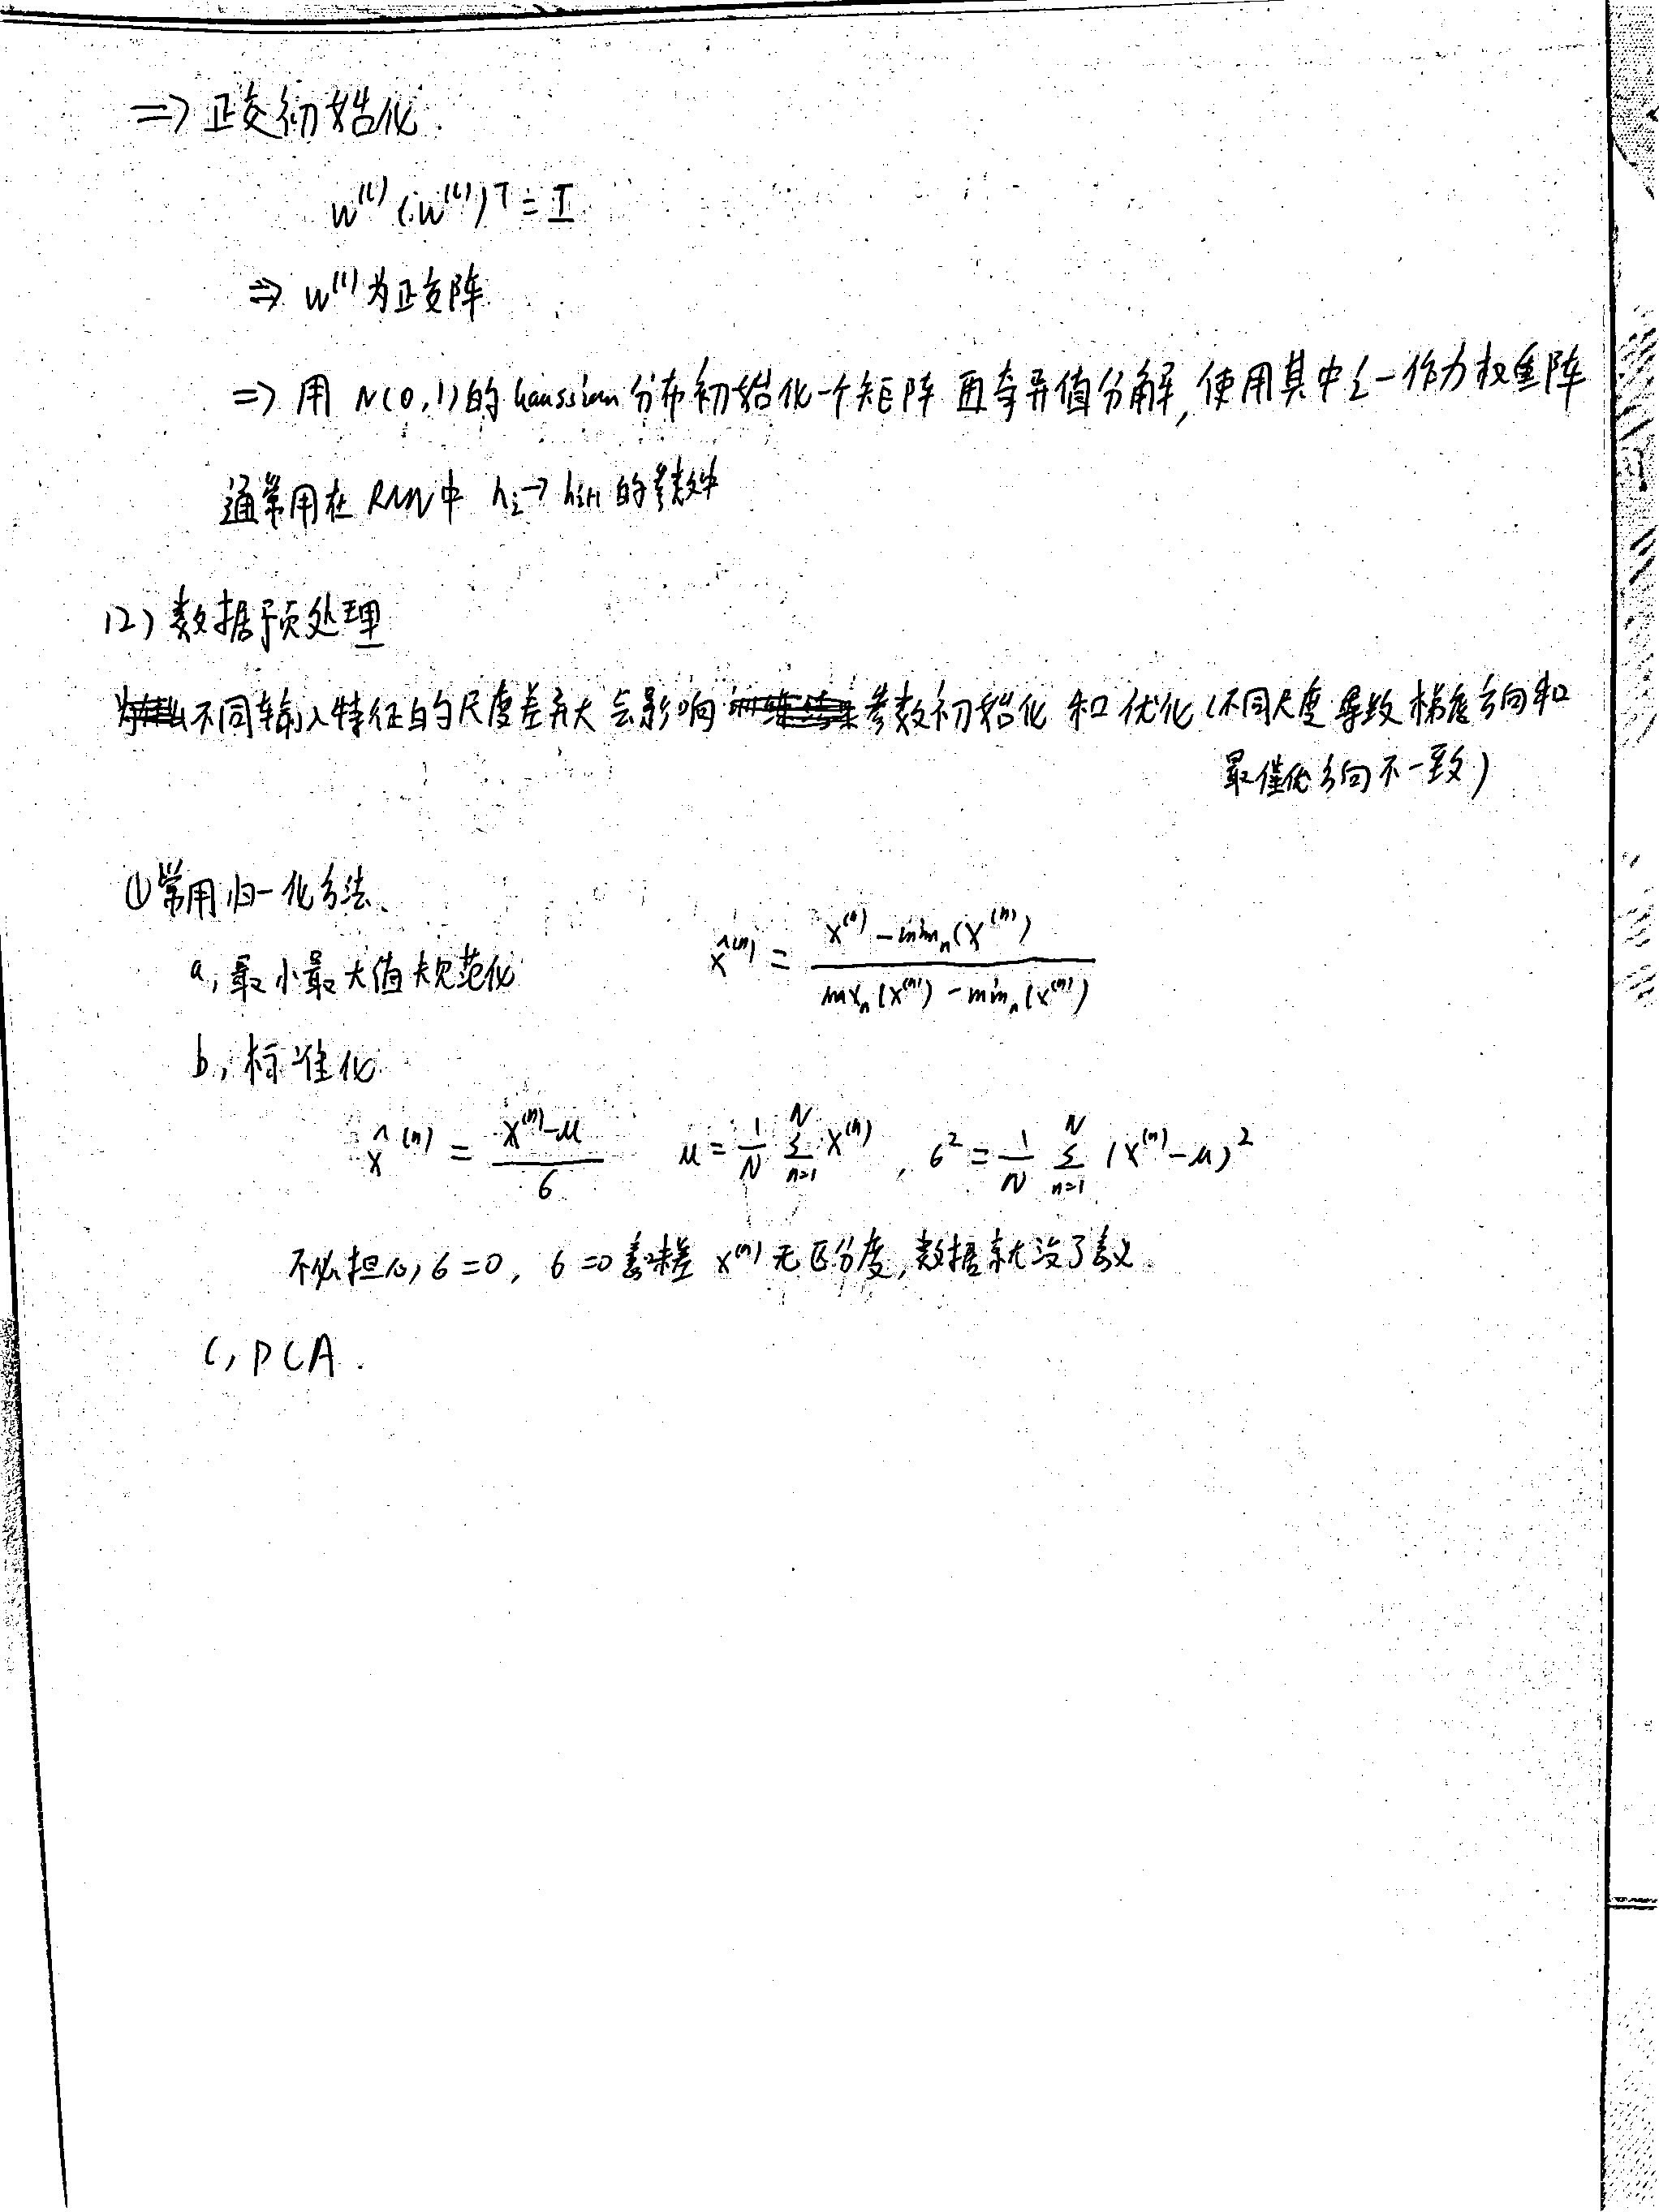 => 正交初始化
W^(l) (W^(l))^T = I
=> W^(l)为正交阵
=> 用 N(0,1)的Gaussian分布初始化一个矩阵 再奇异值分解, 使用其中之一作为权重阵
通常用在 RNN中 h_i→h_i+1 的参数中
(2) 数据预处理
不同输入特征的尺度差弃大会影响 参数初始化 和 优化 (不同尺度 导致 梯度方向和
最优化方向不一致)
① 常用归一化方法
a, 最小最大值规范化 x̂^(n) = (x^(n) - min_n(x^(n))) / (max_n(x^(n)) - min_n(x^(n)))
b, 标准化
x̂^(n) = (x^(n) - μ) / σ μ = 1/N Σ_{n=1}^{N} x^(n) , σ² = 1/N Σ_{n=1}^{N} (x^(n) - μ)²
不必担心 σ = 0, σ = 0 意味着 x^(n) 无区分度, 数据就没了意义
c, PCA.